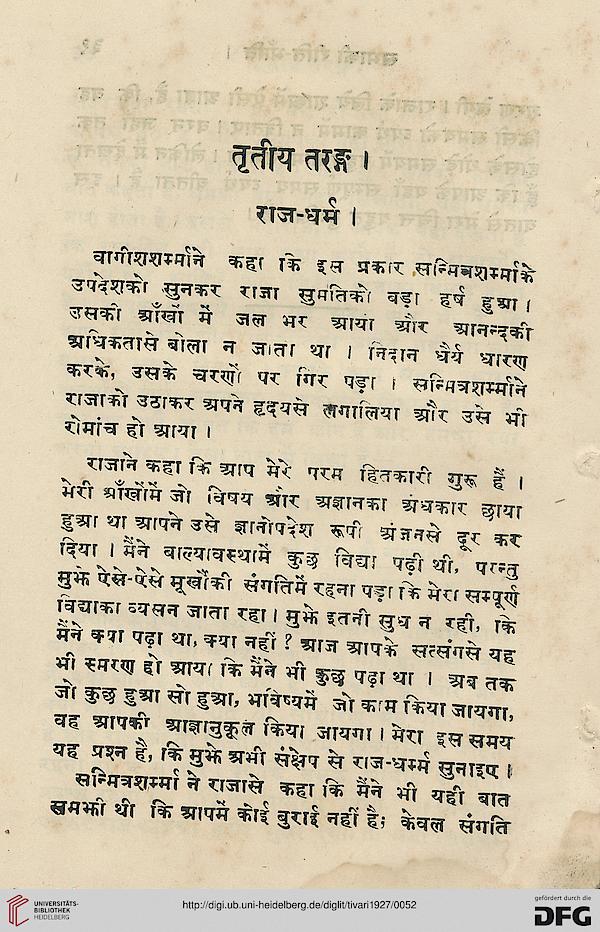 तृतीय तरङ्ग ।
राज-धर्म ।
वागीशशर्म्माने कहा कि इस प्रकार सन्मित्रशर्म्माके
उपदेशको सुनकर राजा सुमतिको बड़ा हर्ष हुआ ।
उसकी आँखों में जल भर आया और आनन्दकी
अधिकतासे बोला न जाता था । निदान धैर्य धारण
करके, उसके चरणों पर गिर पड़ा । सन्मित्रशर्म्माने
राजाको उठाकर अपने हृदयसे लगालिया और उसे भी
रोमांच हो आया ।
राजाने कहा कि आप मेरे परम हितकारी गुरू हैं ।
मेरी आँखोंमें जो विषय और अज्ञानका अंधकार छाया
हुआ था आपने उसे ज्ञानोपदेश रूपी अंजनसे दूर कर
दिया । मैंने बाल्यावस्थामें कुछ विद्या पढ़ी थी, परन्तु
मुझे ऐसे-ऐसे मूर्खोंकी संगतिमें रहना पड़ा कि मेरा सम्पूर्ण
विद्याका व्यसन जाता रहा । मुझे इतनी सुध न रही, कि
मैंने क्या पढ़ा था, क्या नहीं ? आज आपके सत्संगसे यह
भी स्मरण हो आया कि मैंने भी कुछ पढ़ा था । अब तक
जो कुछ हुआ सो हुआ, भविष्यमें जो काम किया जायगा,
वह आपकी आज्ञानुकूल किया जायगा । मेरा इस समय
यह प्रश्न है, कि मुझे अभी संक्षेप से राज-धर्म्म सुनाइए ।
सन्मित्रशर्म्मा ने राजासे कहा कि मैंने भी यही बात
समझी थी कि आपमें कोई बुराई नहीं है; केवल संगति
UNIVERSITÄTS-
BIBLIOTHEK
HEIDELBERG
http://digi.ub.uni-heidelberg.de/diglit/tivari1927/0052
gefördert durch die
DFG